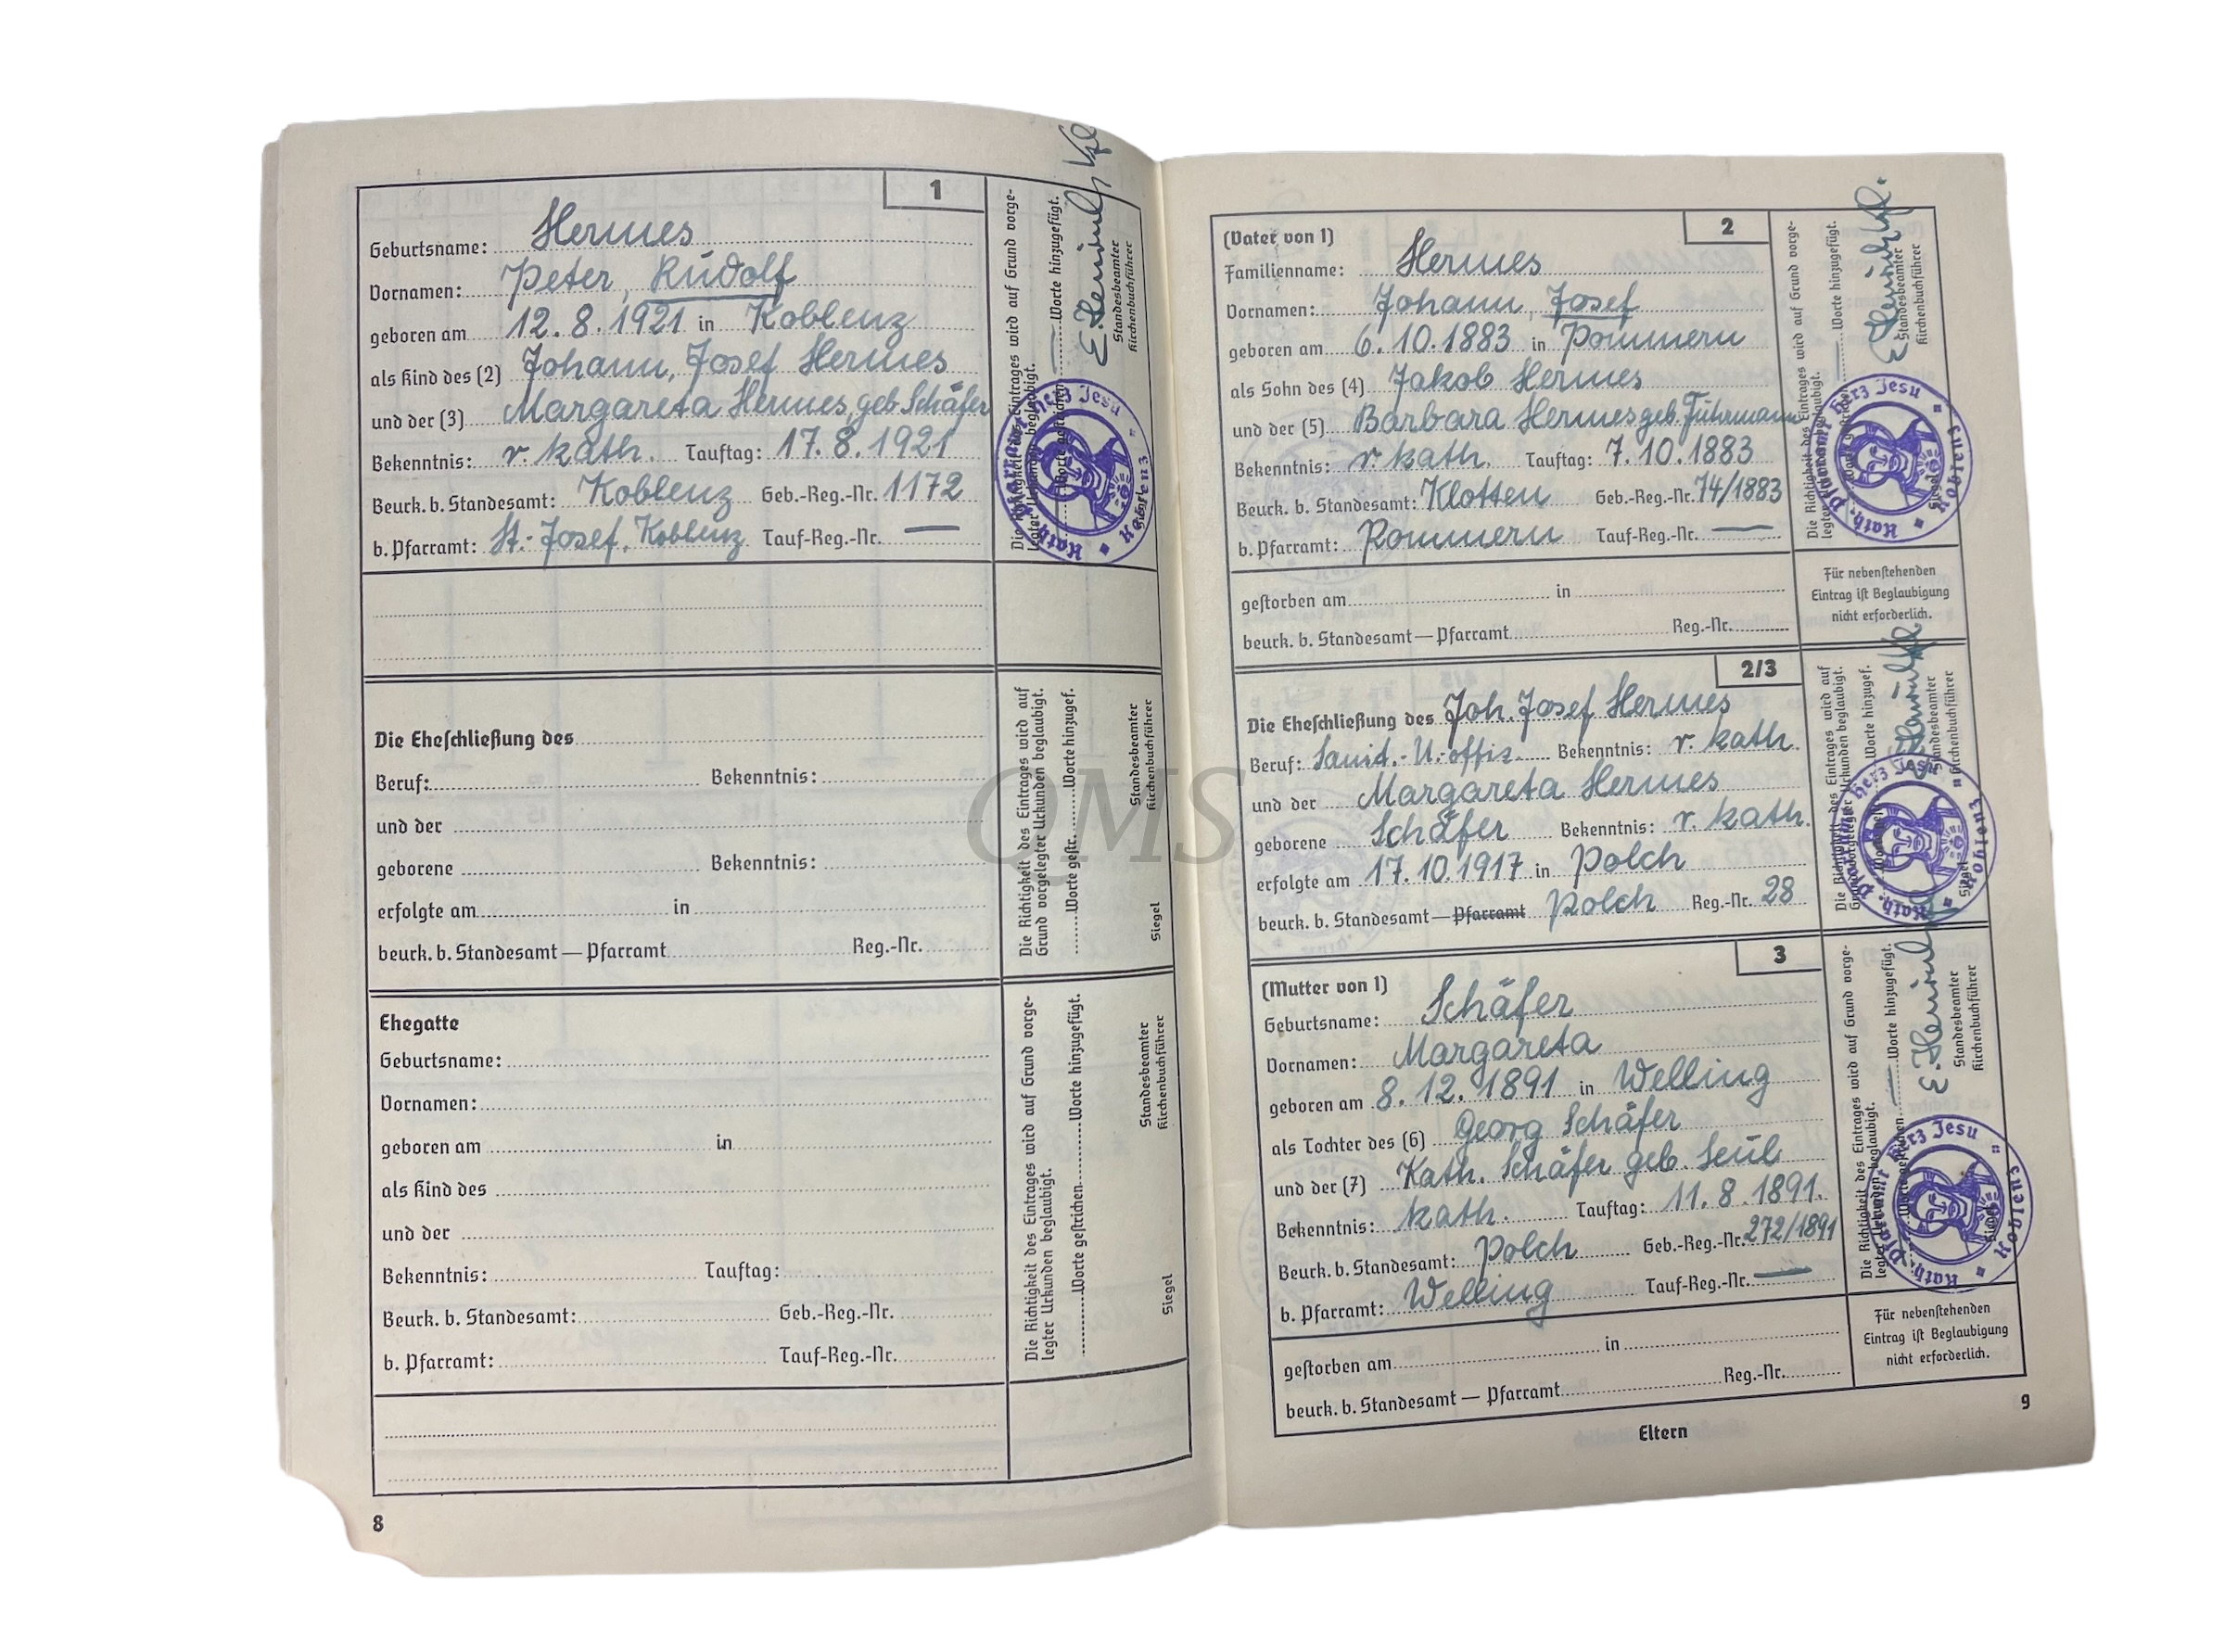 1
Geburtsname: Hermes
Vornamen: Peter, Rudolf
geboren am 12.8.1921 in Koblenz
als Kind des (2) Johann, Josef Hermes
und der (3) Margareta Hermes, geb. Schäfer
Bekenntnis: r. kath. Tauftag: 17.8.1921
Beurk. b. Standesamt: Koblenz Geb.-Reg.-Nr. 1172
b. Pfarramt: St. Josef, Koblenz Tauf-Reg.-Nr. —
Die Richtigkeit des Eintrages wird auf Grund vorge-
legter Urkunden beglaubigt.
Worte gestrichen Worte hinzugefügt.
Standesbeamter
Kirchenbuchführer
Siegel
Kath. Pfarramt Herz Jesu Koblenz
Die Eheschließung des
Beruf: Bekenntnis:
und der
geborene Bekenntnis:
erfolgte am in
beurk. b. Standesamt — Pfarramt Reg.-Nr.
Die Richtigkeit des Eintrages wird auf
Grund vorgelegter Urkunden beglaubigt.
Worte gestr. Worte hinzugef.
Standesbeamter
Kirchenbuchführer
Siegel
Ehegatte
Geburtsname:
Vornamen:
geboren am in
als Kind des
und der
Bekenntnis: Tauftag:
Beurk. b. Standesamt: Geb.-Reg.-Nr.
b. Pfarramt: Tauf-Reg.-Nr.
Die Richtigkeit des Eintrages wird auf Grund vorge-
legter Urkunden beglaubigt.
Worte gestrichen Worte hinzugefügt.
Standesbeamter
Kirchenbuchführer
Siegel
8
QMS
2
(Vater von 1)
Familienname: Hermes
Vornamen: Johann, Josef
geboren am 6.10.1883 in Pommern
als Sohn des (4) Jakob Hermes
und der (5) Barbara Hermes geb. Führmann
Bekenntnis: r. kath. Tauftag: 7.10.1883
Beurk. b. Standesamt: Klotten Geb.-Reg.-Nr. 74/1883
b. Pfarramt: Pommern Tauf-Reg.-Nr. —
Die Richtigkeit des Eintrages wird auf Grund vorge-
legter Urkunden beglaubigt.
Worte gestrichen Worte hinzugefügt.
Standesbeamter
Kirchenbuchführer
Siegel
Kath. Pfarramt Herz Jesu Koblenz
gestorben am in
beurk. b. Standesamt — Pfarramt Reg.-Nr.
Für nebenstehenden
Eintrag ist Beglaubigung
nicht erforderlich.
2/3
Die Eheschließung des Joh. Josef Hermes
Beruf: Sanit.-U.-offiz. Bekenntnis: r. kath.
und der Margareta Hermes
geborene Schäfer Bekenntnis: r. kath.
erfolgte am 17.10.1917 in Polch
beurk. b. Standesamt — Pfarramt Polch Reg.-Nr. 28
Die Richtigkeit des Eintrages wird auf
Grund vorgelegter Urkunden beglaubigt.
Worte gestr. Worte hinzugef.
Standesbeamter
Kirchenbuchführer
Siegel
Kath. Pfarramt Herz Jesu Koblenz
3
(Mutter von 1)
Geburtsname: Schäfer
Vornamen: Margareta
geboren am 8.12.1891 in Welling
als Tochter des (6) Georg Schäfer
und der (7) Kath. Schäfer geb. Seul
Bekenntnis: kath. Tauftag: 11.8.1891.
Beurk. b. Standesamt: Polch Geb.-Reg.-Nr. 272/1891
b. Pfarramt: Welling Tauf-Reg.-Nr. —
Die Richtigkeit des Eintrages wird auf Grund vorge-
legter Urkunden beglaubigt.
Worte gestrichen Worte hinzugefügt.
Standesbeamter
Kirchenbuchführer
Siegel
Kath. Pfarramt Herz Jesu Koblenz
gestorben am in
beurk. b. Standesamt — Pfarramt Reg.-Nr.
Für nebenstehenden
Eintrag ist Beglaubigung
nicht erforderlich.
Eltern
9